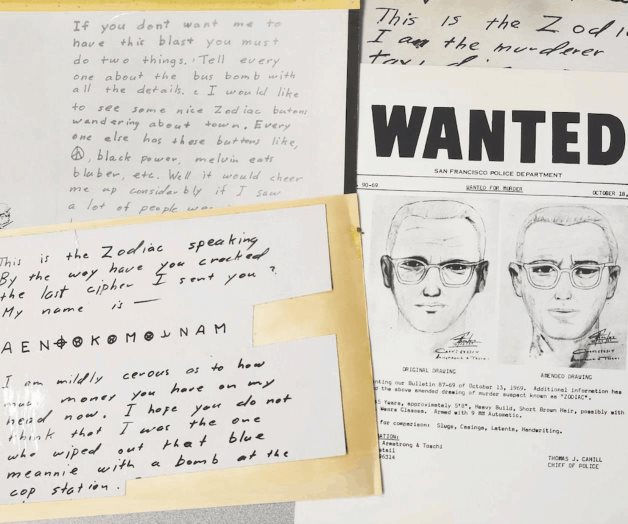 If you dont want me to
have this blast you must
do two things. Tell every
one about the bus bomb with
all the details. I would like
to see some nice Zodiac butons
wandering about town. Every
one else has these buttons like,
black power, melvin eats
bluber, etc. Well it would cheer
me up considerbly if I saw
a lot of people
This is the Zodiac speaking
By the way have you cracked
the last cipher I sent you ?
My name is —
A E N ⊕ K M N A M
I am mildly cerous as to how
much money you have on my
head now. I hope you do not
think that I was the one
who wiped out that blue
meannie with a bomb at the
cop station.
This is the Zodi
I am the murderer
WANTED
SAN FRANCISCO POLICE DEPARTMENT
90-69 WANTED FOR MURDER OCTOBER 18,
ORIGINAL DRAWING AMENDED DRAWING
nting our Bulletin 87-69 of October 13, 1969. Additional information has
the above amended drawing of murder suspect known as "ZODIAC".
5 Years, approximately 5'8", Heavy Build, Short Brown Hair, possibly with
Wears Glasses. Armed with 9 MM Automatic.
for comparison: Slugs, Casings, Latents, Handwriting.
ATION:
Armstrong & Toschi
tail
96314
THOMAS J. CAHILL
CHIEF OF POLICE